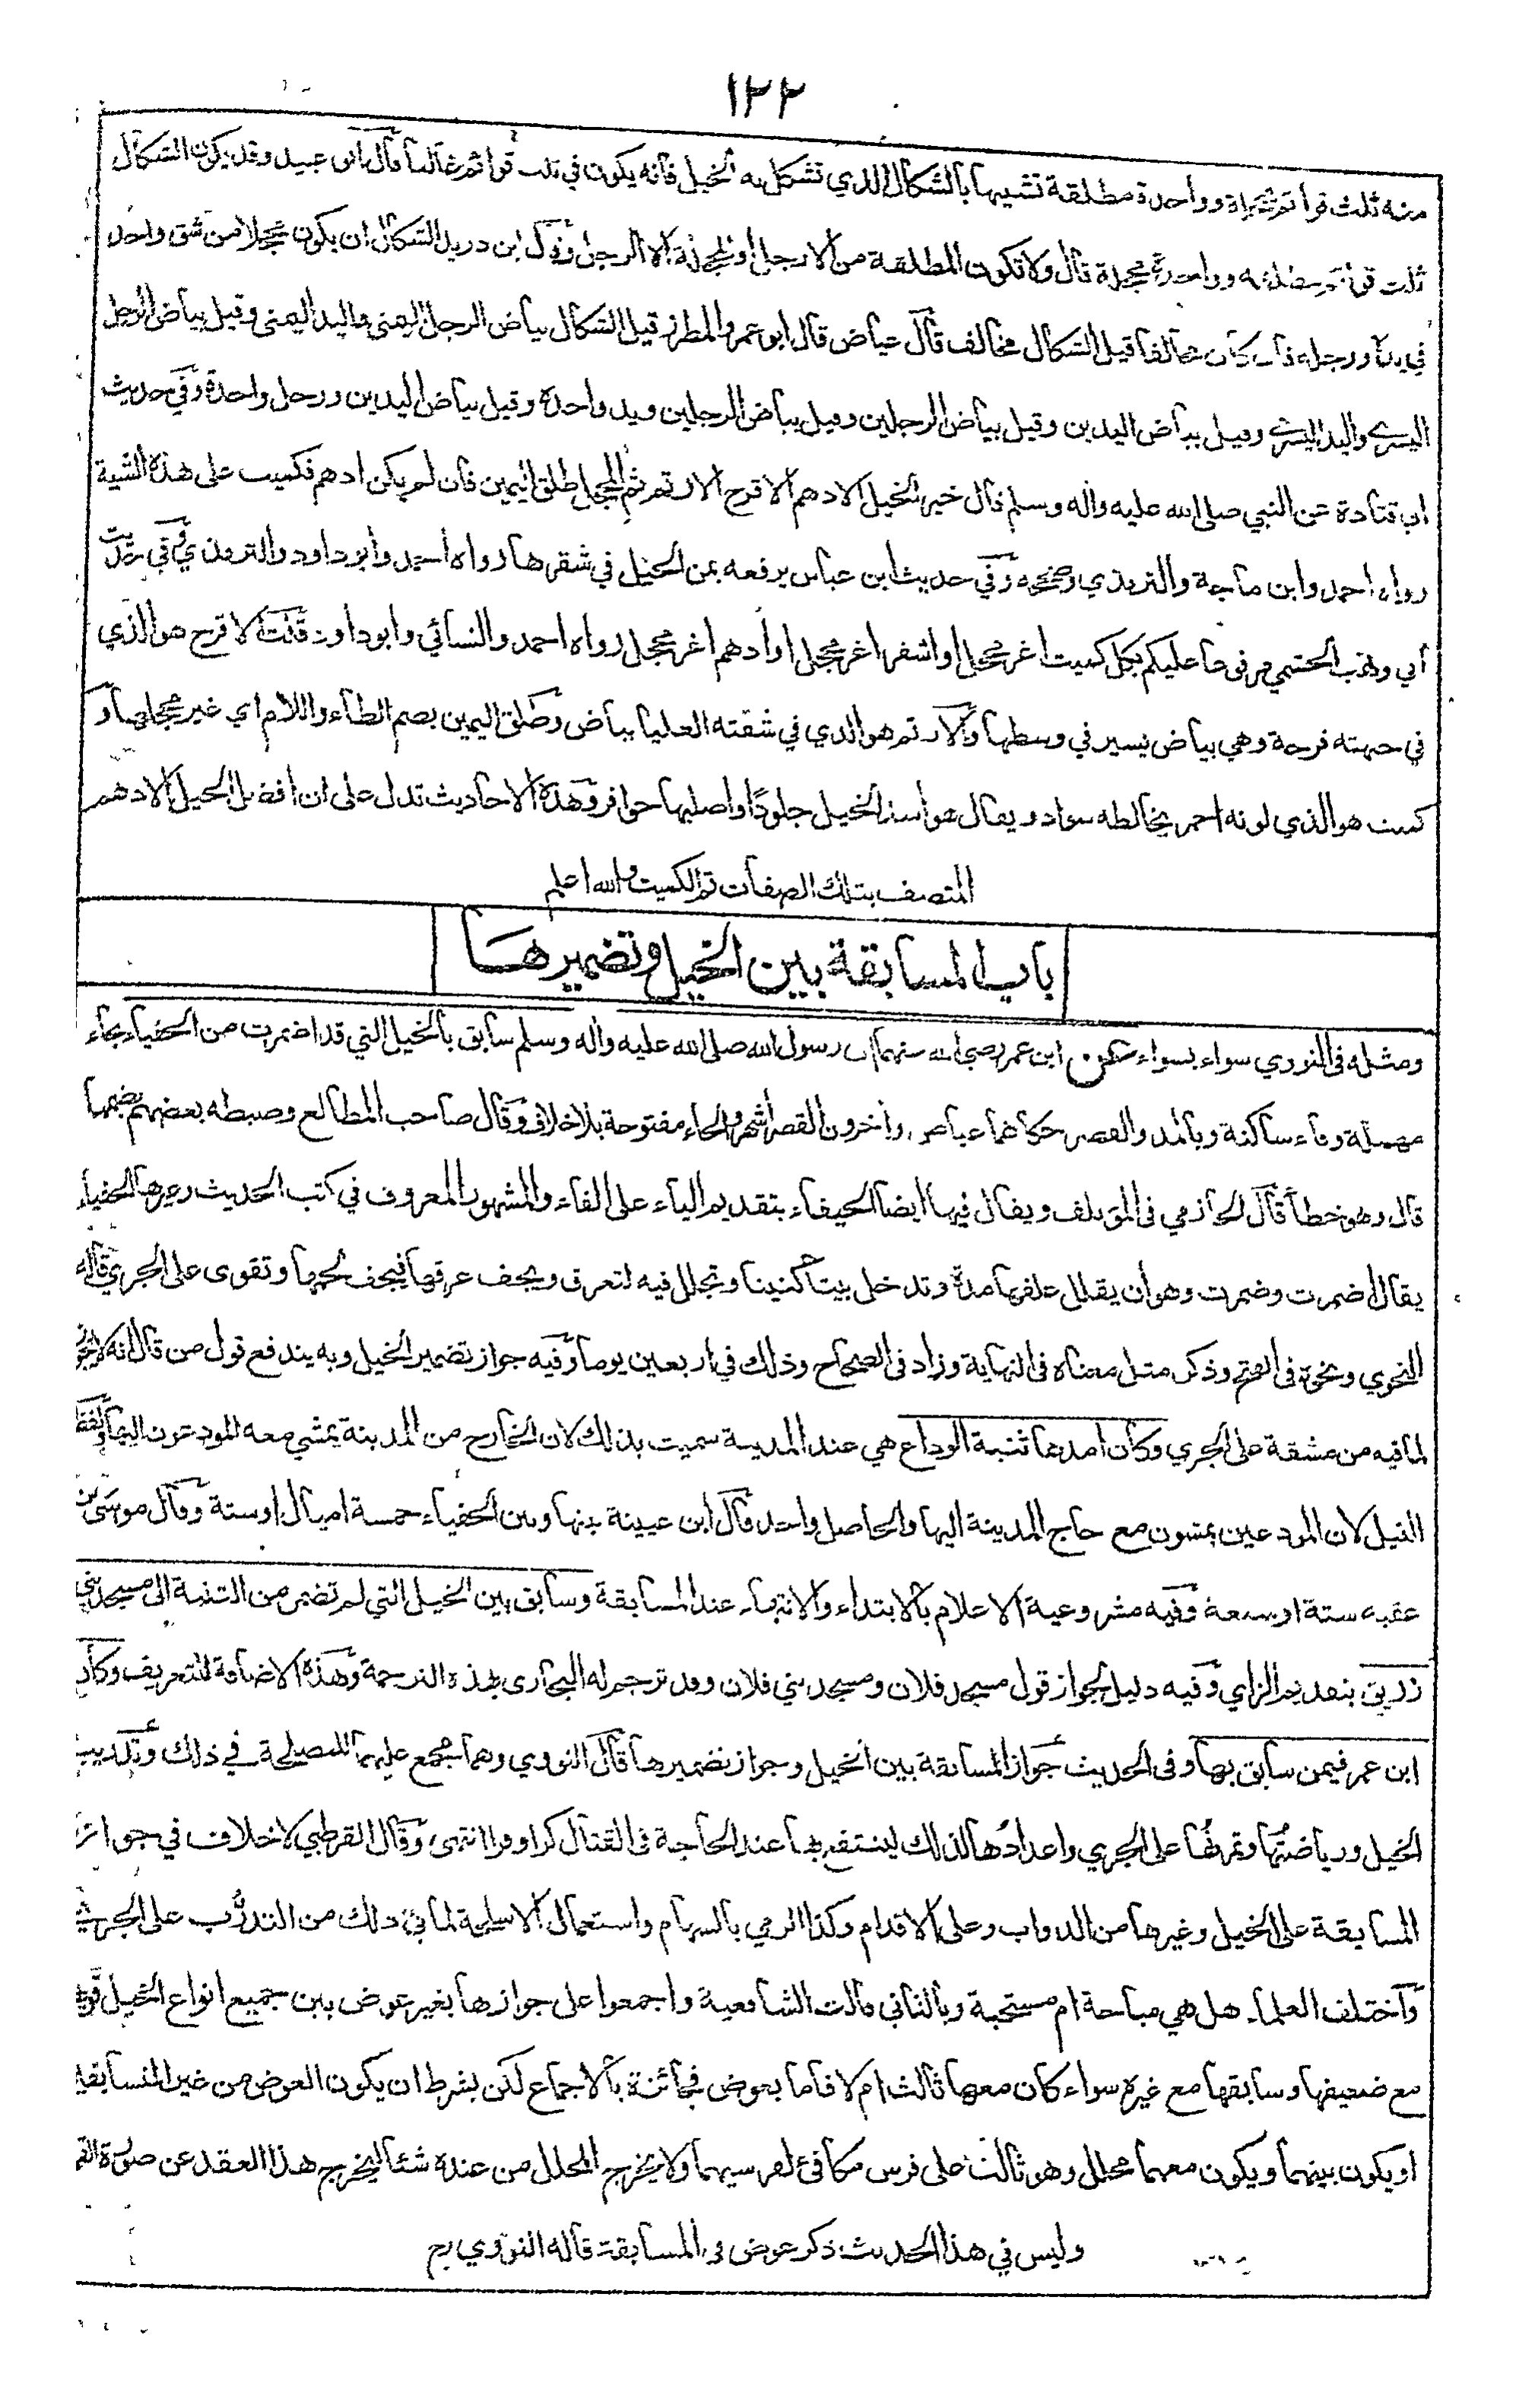 ١٢٢
منه ثلث قوائم محجلة وواحدة مطلقة تشبيها بالشكال الذي تشكل به الخيل فانه يكون في ثلث قوائم غالبا قال ابو عبيد وقد يكون الشكال
ثلث قوائم مطلقة وواحدة محجلة قال ولا تكون المطلقة من الارجل او المحجلة الا الرجل وقال ابن دريد الشكال ان يكون محجلا من شق واحد
في يده ورجله فان كان مخالفا قيل الشكال مخالف قال عياض قال ابو عمر والمطرز قيل الشكال بياض الرجل اليمنى واليد اليمنى وقيل بياض الرجل
اليسرى واليد اليسرى وقيل بياض اليدين وقيل بياض الرجلين وقيل بياض الرجلين ويد واحدة وقيل بياض اليدين ورجل واحدة وفي حديث
ابي قتادة عن النبي صلى الله عليه واله وسلم قال خير الخيل الادهم الاقرح الارثم ثم المحجل طلق اليمين فان لم يكن ادهم فكميت على هذه الشية
رواه احمد وابن ماجة والترمذي وصححه وفي حديث ابن عباس يرفعه يمن الخيل في شقرها رواه احمد وابو داود والترمذي وفي حديث
أبي وهب الجشمي مرفوعا عليكم بكل كميت اغر محجل او اشقر اغر محجل او أدهم اغر محجل رواه احمد والنسائي وابو داود قلت الاقرح هو الذي
في جبهته قرحة وهي بياض يسير في وسطها والارثم هو الذي في شفته العليا بياض وطلق اليمين بضم الطاء واللام اي غير محجلها و
كميت هو الذي لونه احمر يخالطه سواد ويقال هو اشد الخيل جلودًا واصلبها حوافر وهذه الاحاديث تدل على ان افضل الخيل الادهم
المتصف بتلك الصفات ثم الكميت والله اعلم
باب المسابقة بين الخيل وتضميرها
ومثله في النووي سواء بسواء عن ابن عمر رضي الله عنهما ان رسول الله صلى الله عليه واله وسلم سابق بالخيل التي قد اضمرت من الحفياء بحاء
مهملة وفاء ساكنة وبالمد والقصر حكاهما عياض واخرون القصر اشهر والحاء مفتوحة بلا خلاف وقال صاحب المطالع وضبطه بعضهم بضمها
قال وهو خطأ قال الحازمي في المؤتلف ويقال فيها ايضا الحيفاء بتقديم الياء على الفاء والمشهور المعروف في كتب الحديث وغيرها الحفياء
يقال اضمرت وضمرت وهو أن يقلل علفها مدة وتدخل بيتا كنينا وتجلل فيه لتعرق ويجف عرقها فيجف لحمها وتقوى على الجري قاله
النووي ونحوه في الفتح وذكر مثل معناه في النهاية وزاد في الصحاح وذلك في اربعين يوما وفيه جواز تضمير الخيل وبه يندفع قول من قال انه لا يجوز
لما فيه من مشقة على الجري وكان امدها ثنية الوداع هي عند المدينة سميت بذلك لان الخارج من المدينة يمشي معه المودعون اليها ولفظ
النيل لان المودعين يمشون مع حاج المدينة اليها والحاصل واحد قال ابن عيينة بينها وبين الحفياء خمسة اميال او ستة وقال موسى بن
عقبة ستة او سبعة وفيه مشروعية الاعلام بالابتداء والانتهاء عند المسابقة وسابق بين الخيل التي لم تضمر من الثنية الى مسجد بني
زريق بتقديم الزاي وفيه دليل لجواز قول مسجد فلان ومسجد بني فلان وقد ترجم له البخاري بهذه الترجمة وهذه الاضافة للتعريف وكان
ابن عمر فيمن سابق بها وفى الحديث جواز المسابقة بين الخيل وجواز تضميرها قال النووي وهما مجمع عليهما للمصلحة في ذلك وتدريب
الخيل ورياضتها وتمرنها على الجري واعدادها لذلك لينتفع بها عند الحاجة في القتال كرا وفرا انتهى وقال القرطبي لا خلاف في جواز
المسابقة على الخيل وغيرها من الدواب وعلى الاقدام وكذا الرمي بالسهام واستعمال الاسلحة لما في ذلك من التدرُّب على الجري
واختلف العلماء هل هي مباحة ام مستحبة وبالثاني قالت الشافعية واجمعوا على جوازها بغير عوض بين جميع انواع الخيل قويها
مع ضعيفها وسابقها مع غيره سواء كان معها ثالث ام لا فاما بعوض فجائزة بالاجماع لكن بشرط ان يكون العوض من غير المتسابقين
او يكون بينهما ويكون معهما محلل وهو ثالث على فرس مكافئ لفرسيهما ولا يخرج المحلل من عنده شئا ليخرج هذا العقد عن صورة القمار
وليس في هذا الحديث ذكر عوض في المسابقة قاله النووي رح